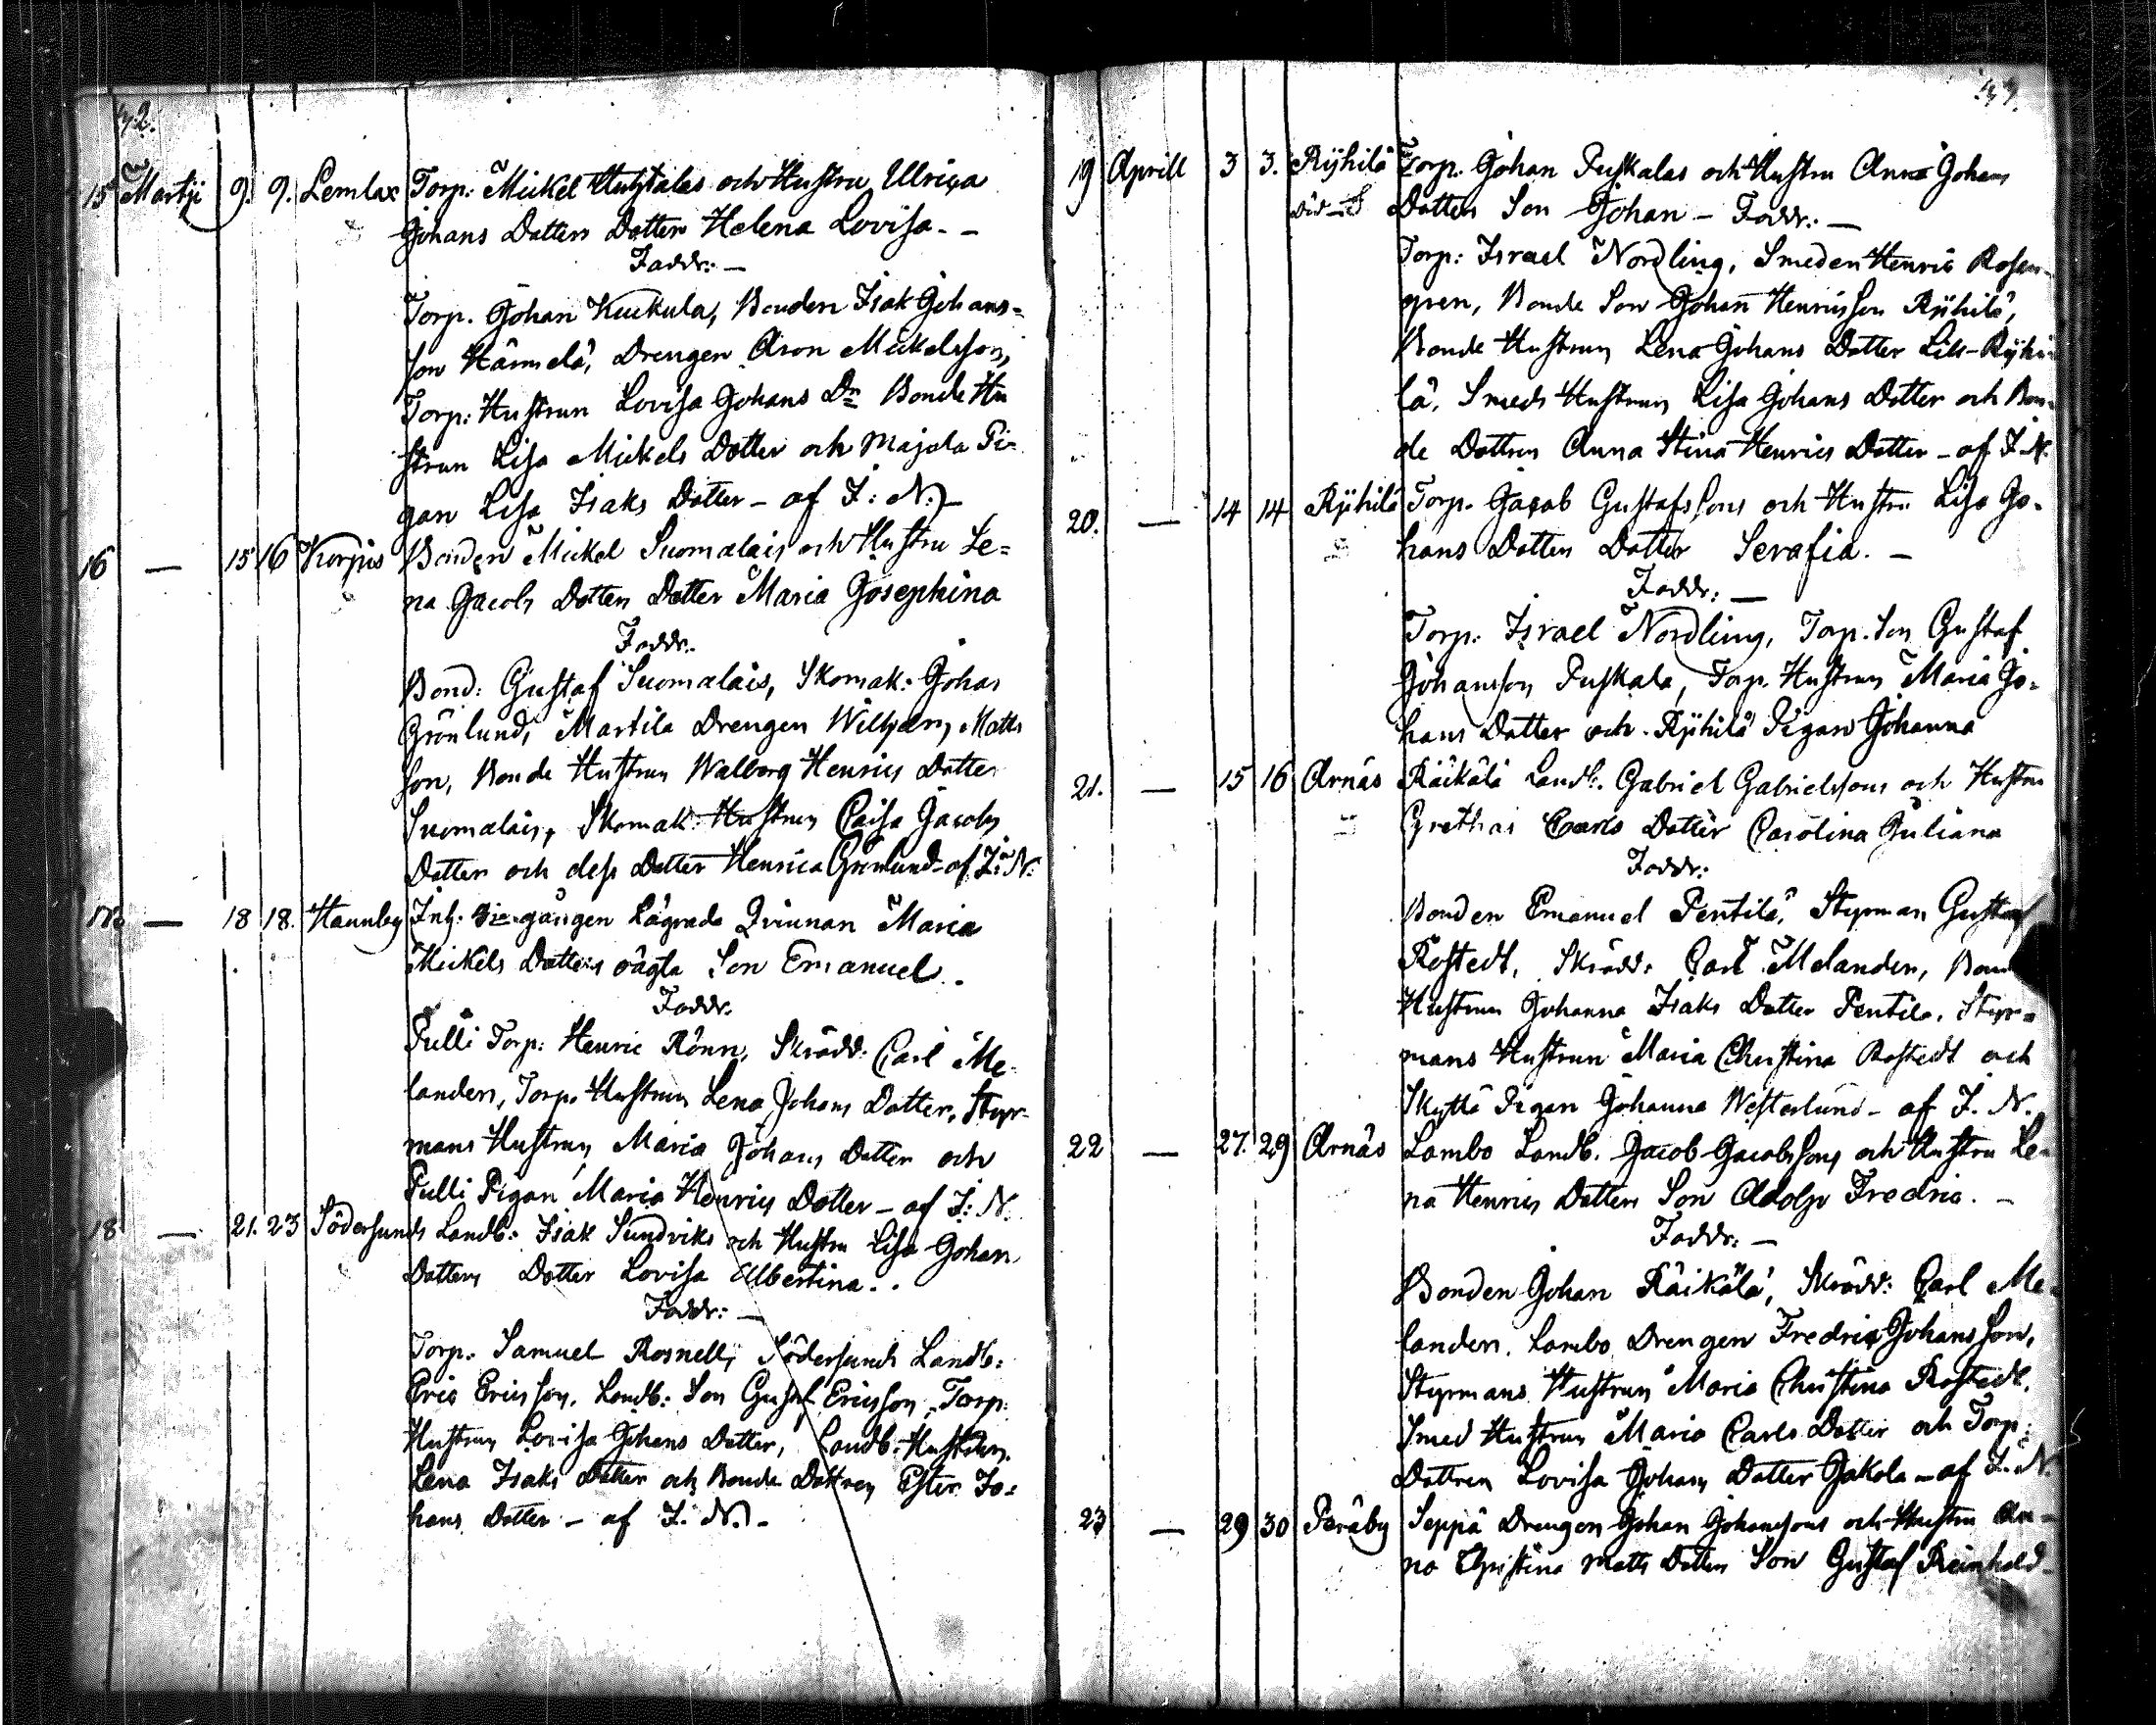 15 Martii 9. 9. Lemlax Torp. Mickel Huhtalas och Hustru Ulrica
Johans Dotters Dotter Helena Lovisa. -
Faddr: -
Torp. Johan Kuckula, Bonden Isak Johans=
son Hämmelä, Drengen Aron Mickelsson,
Torp: Hustrun Lovisa Johans Dr Bonde Hu
strun Lisa Mickels Dotter och Majala Pi=
gan Lisa Isaks Dotter - af I: N.) -
16 — 15 16 Korpis Bonden Mickel Suomalais och Hustru Le=
na Jacobs Dotters Dotter Maria Josephina
Faddr.
Bond: Gustaf Suomalais, Skomak: Johan
Grönlund, Martila Drengen Wilhelm Matts
son, Bonde Hustrun Walborg Henrics Dotter
Suomalais, Skomak: Hustrun Caisa Jacobs
Dotter och dess Dotter Henrica Grönlund - af I: N.
17. — 18 18. Hannby Inh: gången Lägrade Qvinnan Maria
Mickels Dotters oägta Son Emanuel.
Faddr.
Pulli Torp: Henric Rönn, Skrädd: Carl Me-
lander, Torp. Hustrun Lena Johans Dotter, Styr-
mans Hustrun Maria Johans Dotter och
Pulli Pigan Maria Henrics Dotter - af I: N.
18 — 21. 23 Södersunds Landb: Isak Sundviks och Hustru Lisa Johans
Dotters Dotter Lovisa Albertina..
Faddr: -
Torp. Samuel Rosnell, Södersunds Landb:
Eric Ericsson, Landb: Son Gustaf Ericsson, Torp:
Hustrun Lovisa Johans Dotter, Landb: Hustrun
Lena Isaks Dotter och Bonde Dottren Ester Jo=
hans Dotter - af I. N.) -
19 Aprill 3 3. Ryhilä Torp. Johan Puskalas och Hustru Anna Johans
Dotters Son Johan - Faddr: -
Torp: Israel Nordling, Smeden Henric Rosen-
gren, Bonde Son Johan Henricsson Ryhilä,
Bonde Hustrun Lena Johans Dotter Lill-Ryhi
lä, Smeds Hustrun Lisa Johans Dotter och Bon-
de Dottren Anna Stina Henrics Dotter - af I. N.
20. — 14 14 Ryhilä Torp. Jacob Gustafssons och Hustru Lisa Jo-
hans Dotters Dotter Serafia. -
Faddr: -
Torp: Israel Nordling, Torp. Son Gustaf
Johansson Puskala, Torp. Hustrun Maria Jo=
hans Dotter och Ryhilä Pigan Johanna
21. — 15 16 Arnäs Räikälä Landb: Gabriel Gabrielssons och Hustru
Grethas Carls Dotter Carolina Juliana
Faddr:
Bonden Emanuel Pentilä, Styrman Gustaf
Rostedt, Skrädd: Carl Melander, Bon
Hustrun Johanna Isaks Dotter Pentilä, Styr=
mans Hustrun Maria Christina Rostedt och
Skyttä Pigan Johanna Westerlund - af I. N.
22 — 27. 29 Arnäs Lambo Landb. Jacob Jacobssons och Hustru Le-
na Henrics Dotters Son Adolph Fredric. -
Faddr: -
Bonden Johan Räikälä, Skrädd: Carl Me-
lander, Lambo Drengen Fredric Johansson,
Styrmans Hustrun Maria Christina Rostedt,
Smed Hustrun Maria Carls Dotter och Torp:
Dottren Lovisa Johans Dotter Jakola - af I. N.
23 — 29 30 Paräby Seppä Drengen Johan Johanssons och Hustru An-
na Christina Matts Dotters Son Gustaf Reinhold -